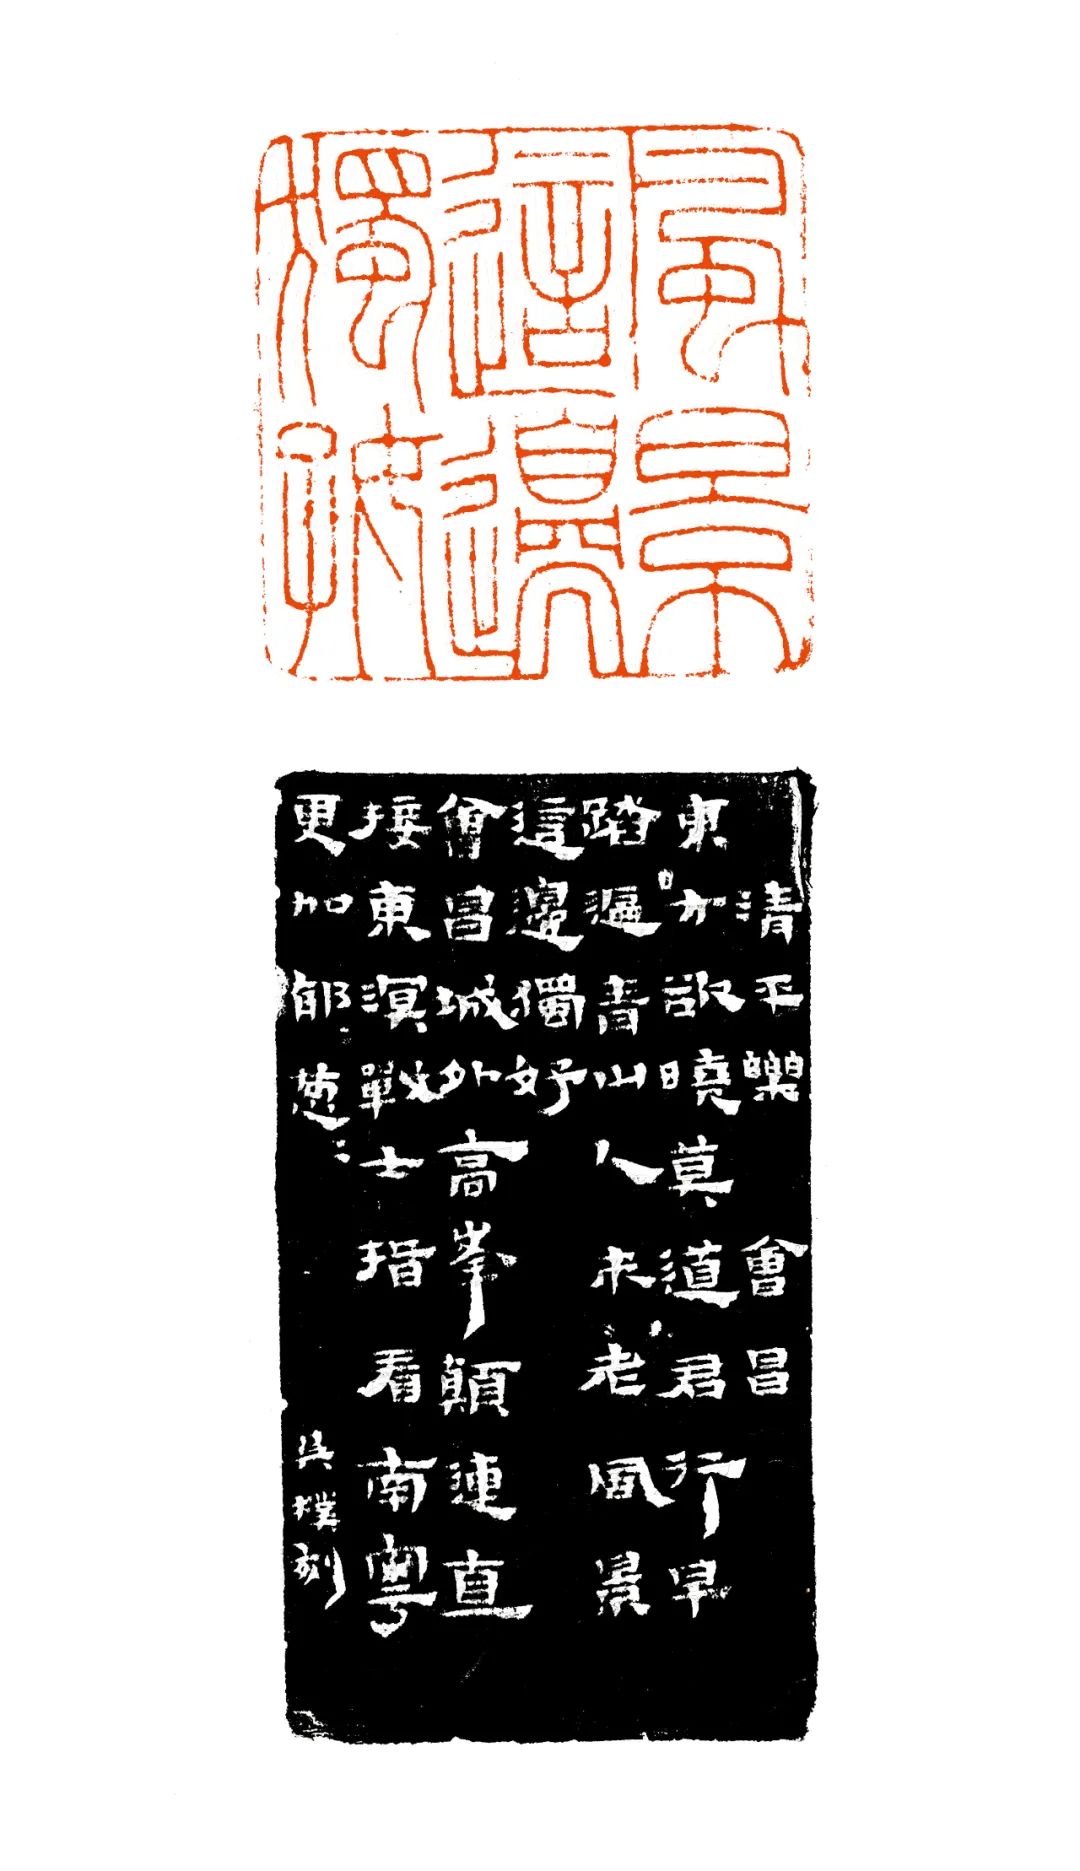 風景
這邊
獨好
清平樂 會昌
東方欲曉莫道君行早
踏遍青山人未老風景
這邊獨好
會昌城外高峯顛連直
接東溟戰士指看南粵
更加郁蔥
吳樸刻